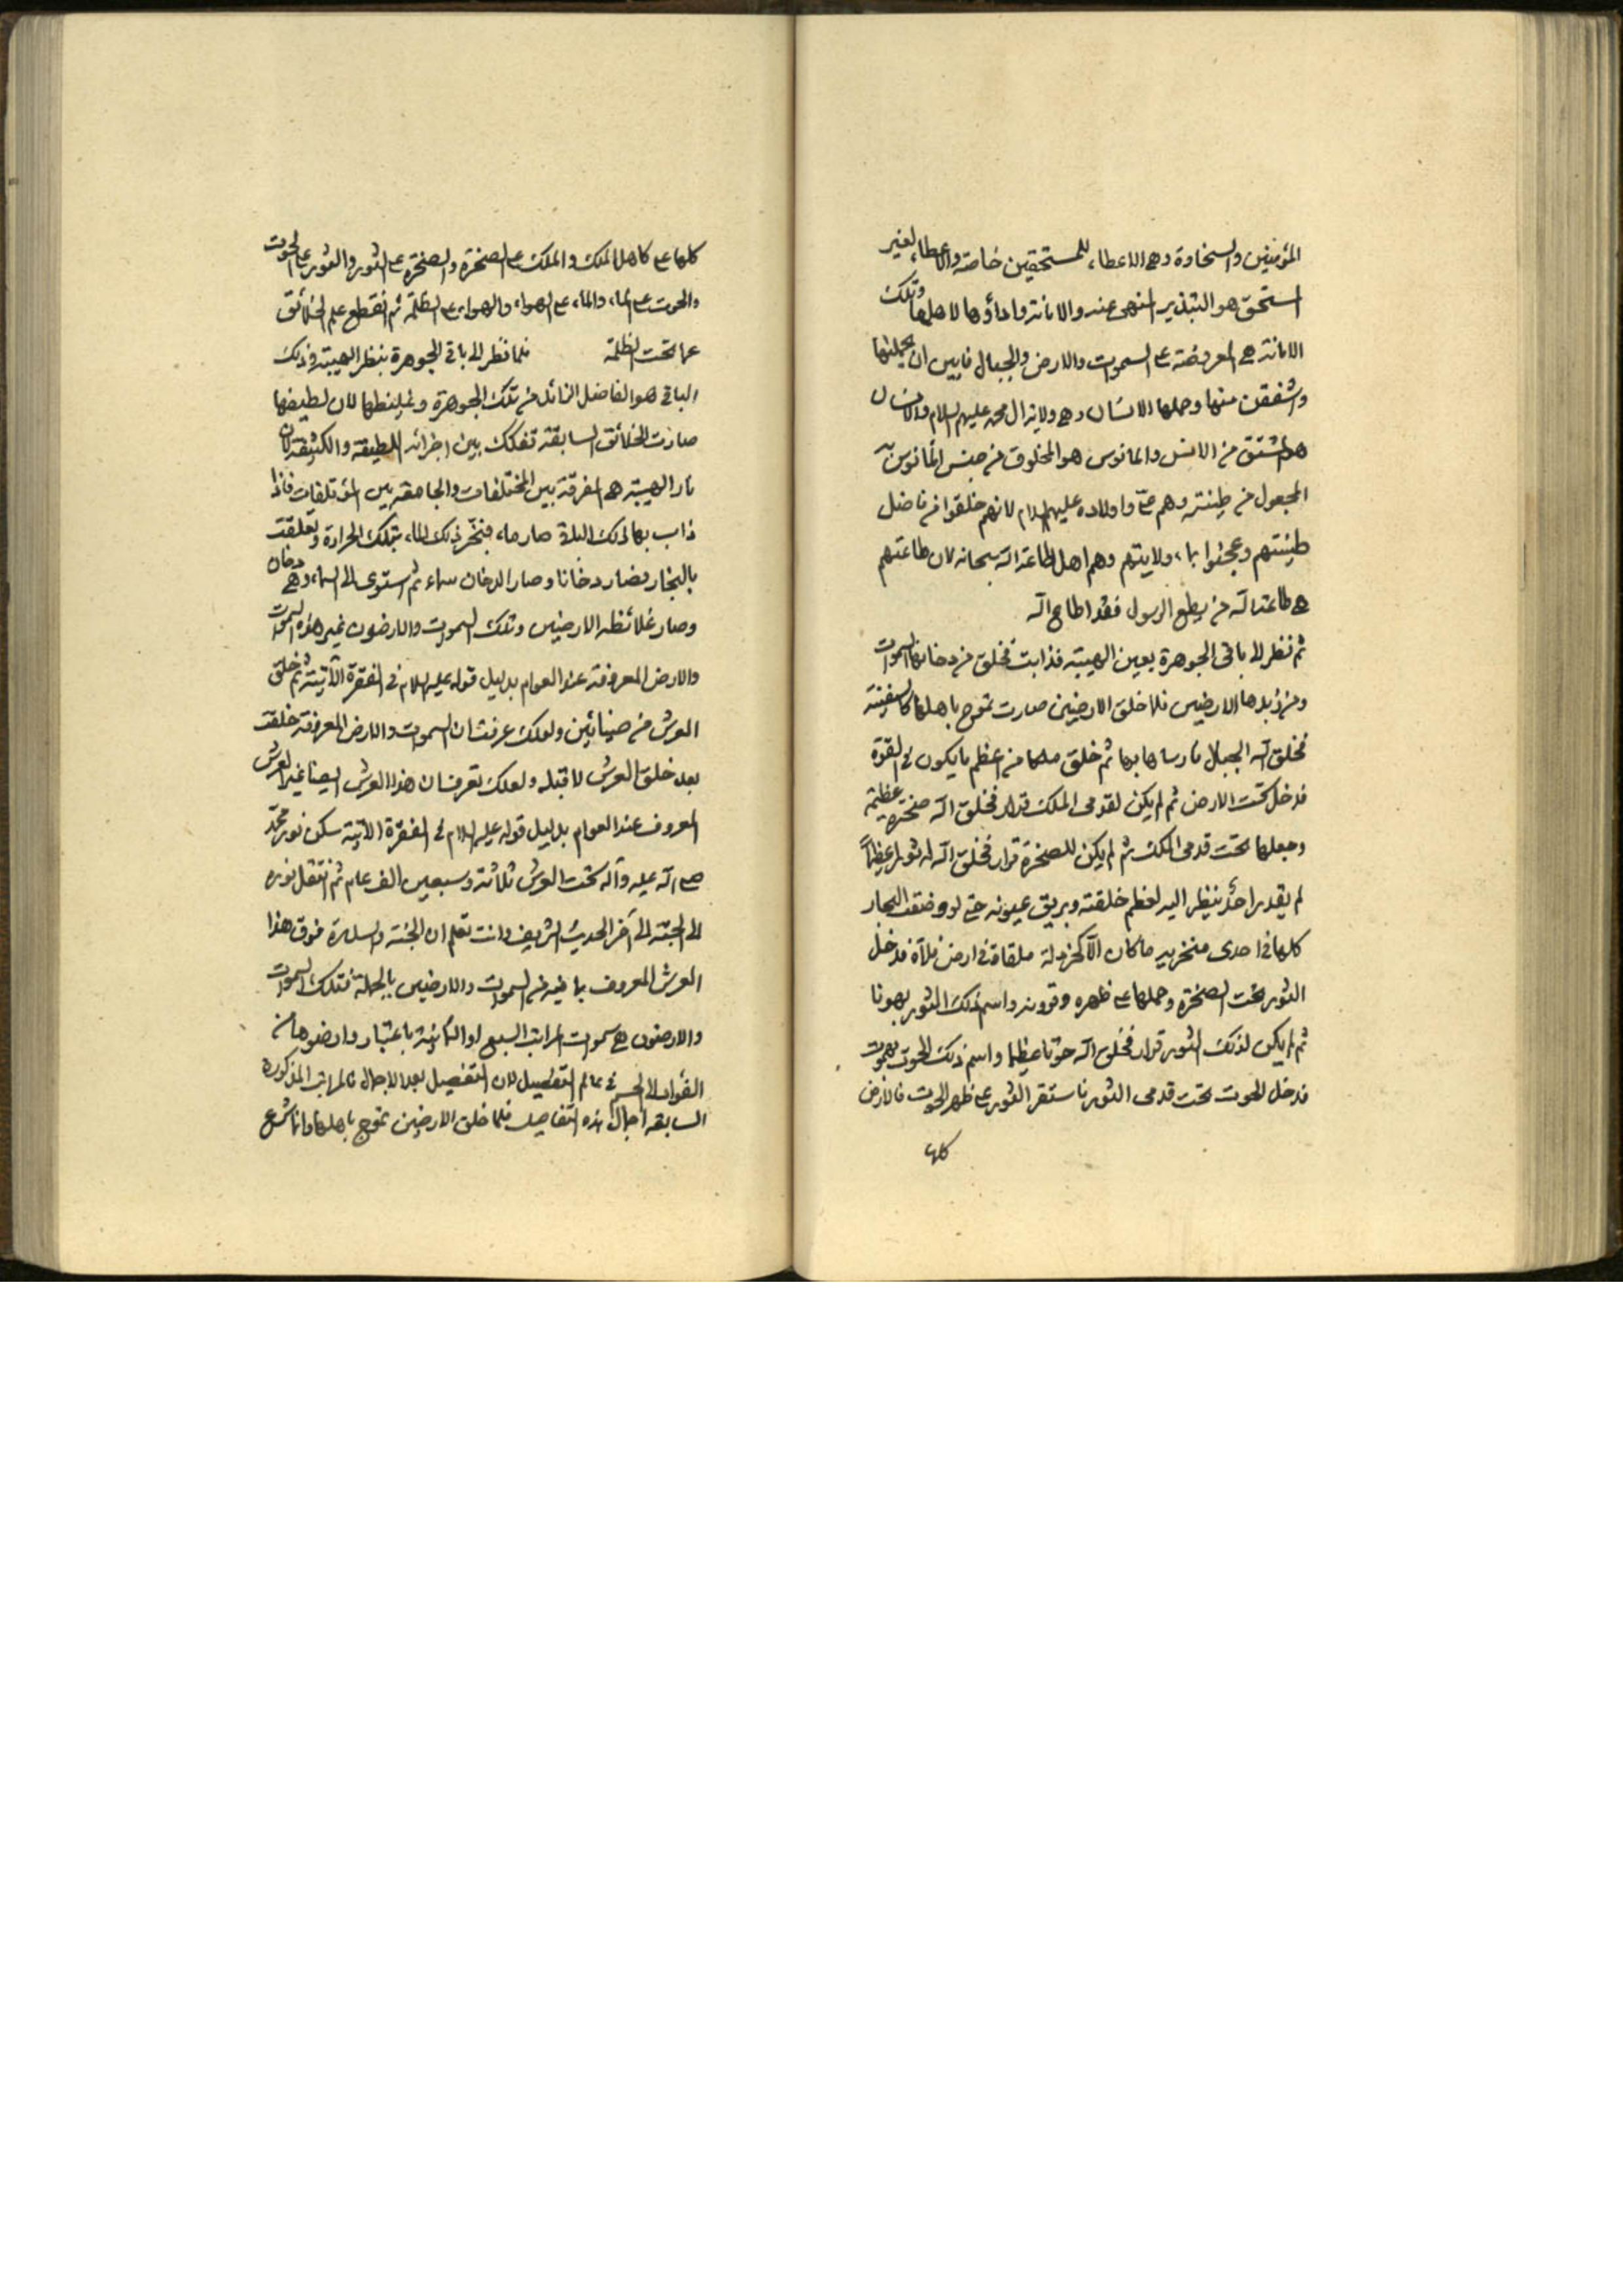 المؤمنين والسخاوة وهي الاعطاء للمستحقين خاصة والاعطاء لغير
استحق هو التبذير المنهى عنه والامانة واداؤها لاهلها وتلك
الامانة هى المعروضة على السموات والارض والجبال فابين ان يحملنها
واشفقن منها وحملها الانسان وهى ولاية ال محمد عليهم السلام والانسان
هو المشتق من الانس والمانوس هو المخلوق من جنس المانوس به
المجعول من طينته وهم على واولاده عليهم السلام لانهم خلقوا من فاضل
طينتهم وعجنوا بماء ولايتهم وهم اهل طاعة الله سبحانه لان طاعتهم
هى طاعة الله من يطع الرسول فقد اطاع الله
ثم نظر الى باقى الجوهرة بعين الهيبة فذابت فخلق من دخانها السموات
ومن زبدها الارضين فلما خلق الارضين صارت تموج باهلها كالسفينة
فخلق الله الجبال فارساها بها ثم خلق ملكا من اعظم ما يكون فى القوة
فدخل تحت الارض ثم لم يكن لقدمى الملك قرار فخلق الله صخرة عظيمة
وجعلها تحت قدمى الملك ثم لم يكن للصخرة قرار فخلق الله لها ثورا عظيماً
لم يقدر احد ينظر اليه لعظم خلقته وبريق عيونه حتى لو وضعت البحار
كلها فى احدى منخريه ما كان الا كخردلة ملقاة فى ارض فلاة فدخل
الثور تحت الصخرة وحملها على ظهره وقرونه واسم ذلك الثور لهوتا
ثم لم يكن لذلك الثور قرار فخلق الله حوتا عظيما واسم ذلك الحوت بهموت
فدخل الحوت تحت قدمى الثور فاستقر الثور على ظهر الحوت فالارض
كلها
كلها على كاهل الملك والملك على الصخرة والصخرة على الثور والثور على الحوت
والحوت على الماء والماء على الهواء والهواء على الظلمة ثم انقطع علم الخلائق
عما تحت الظلمة فلما نظر الى باقى الجوهرة بنظر الهيبة وذلك
الباقى هو الفاضل الزائد من تلك الجوهرة وغليظها لان لطيفها
صارت الخلائق السابقة تفكك بين اجزائه اللطيفة والكثيفة لان
نار الهيبة هى المفرقة بين المختلفات والجامعة بين المؤتلفات فاذا
ذاب بها ذلك البلة صار ماء فبخر ذلك الماء بتلك الحرارة وتعلقت
بالبخار فصار دخانا وصار الدخان سماء ثم استوى الى السماء وهى دخان
وصار غلائظه الارضين وتلك السموات والارضون غير هذه السموات
والارض المعروفة عند العوام بدليل قوله عليه السلام فى الفقرة الآتية ثم خلق
العرش من ضيائين ولعلك عرفت ان السموات والارض المعروفة خلقت
بعد خلق العرش لا قبله ولعلك تعرف ان هذا العرش ايضا غير العرش
المعروف عند العوام بدليل قوله عليه السلام فى الفقرة الآتية سكن نور محمد
صلى الله عليه وآله تحت العرش ثلاثة وسبعين الف عام ثم انتقل نوره
الى الجنة الى آخر الحديث الشريف وانت تعلم ان الجنة والسدرة فوق هذا
العرش المعروف بما فيه من السموات والارضين بالجملة فتلك السموات
والارضون هى سموات المراتب السبع او الثمانية باعتبار وارضوها من
الفؤاد الى الجسم فى عالم التفصيل لان التفصيل بعد الاجمال فالمراتب المذكورة
السابقة اجمال هذه التفاصيل فلما خلق الارضين تموج باهلها وانا اشرع